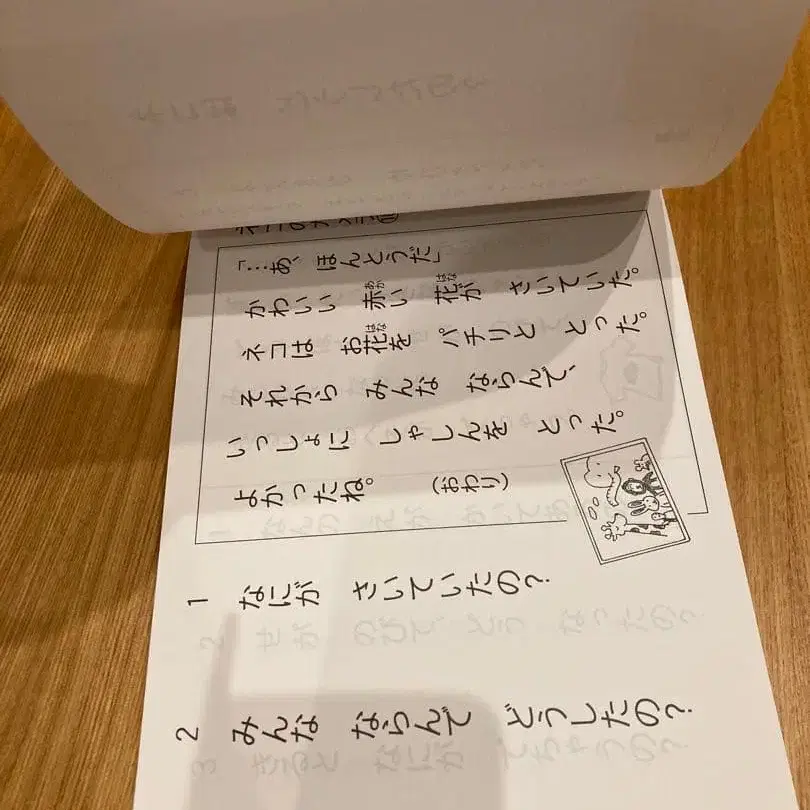 「…あ、ほんとうだ」
かわいい 赤い 花が さいていた。
ネコは お花を パチリと とった。
それから みんな ならんで、
いっしょに しゃしんを とった。
よかったね。 (おわり)
1 なにが さいていたの?
2 みんな ならんで どうしたの?